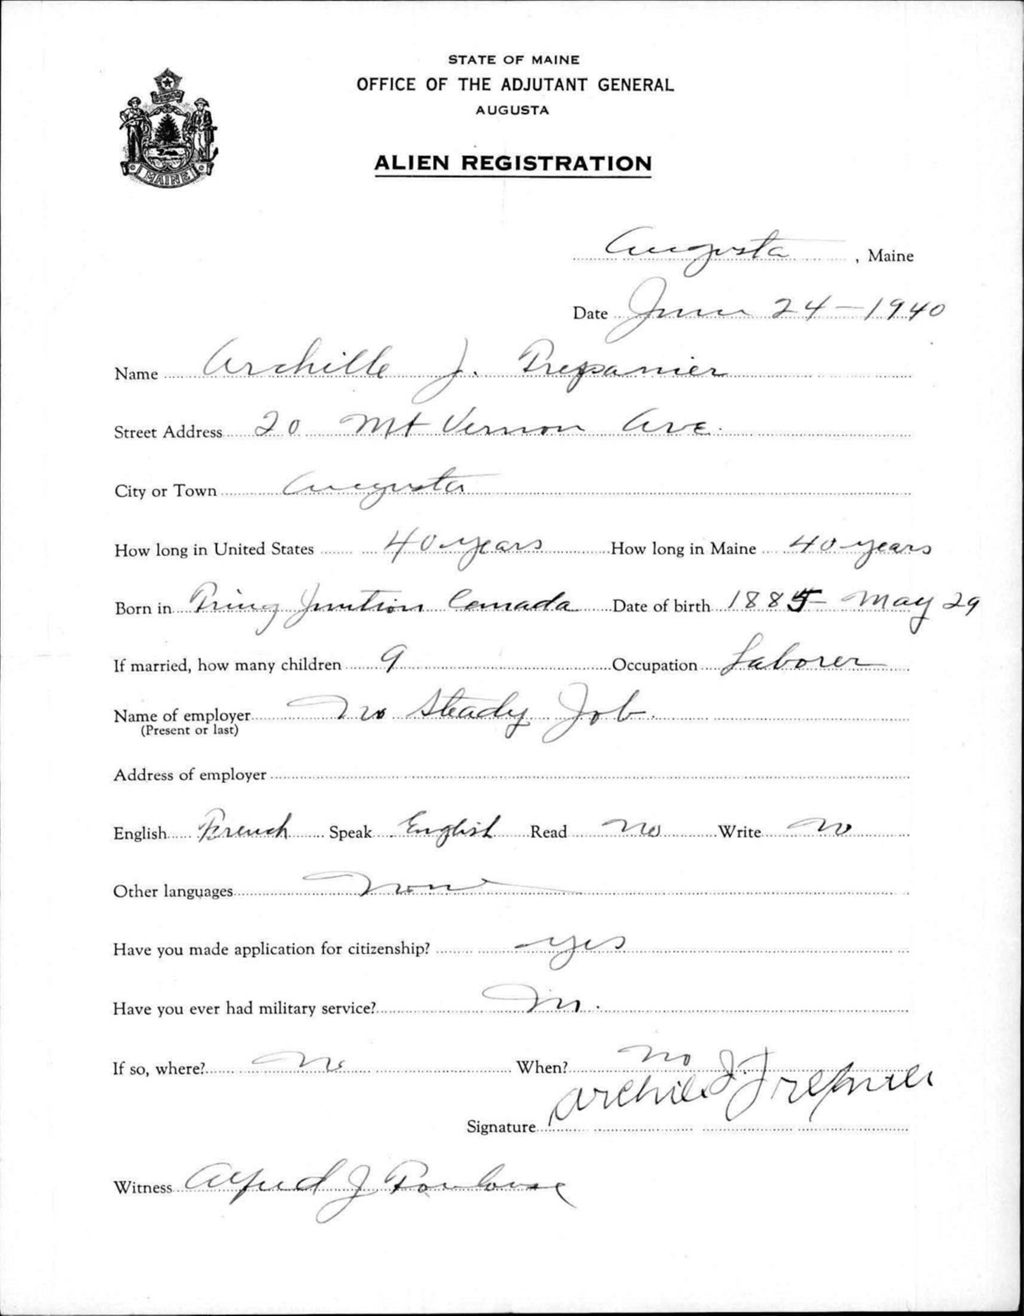 STATE OF MAINE
OFFICE OF THE ADJUTANT GENERAL
AUGUSTA
ALIEN REGISTRATION
MAINE
Augusta, Maine
Date June 24-1940
Name Archille J. Trepanier
Street Address 20 Mt Vernon Ave.
City or Town Augusta
How long in United States 40 years How long in Maine 40 years
Born in Tring Junction Canada Date of birth 1885 - May 29
If married, how many children 9 Occupation Laborer
Name of employer No Steady Job.
(Present or last)
Address of employer
English French Speak English Read No Write No
Other languages None
Have you made application for citizenship? yes
Have you ever had military service? No.
If so, where? No When? No
Signature Archile J. Trepanier
Witness Alfred J